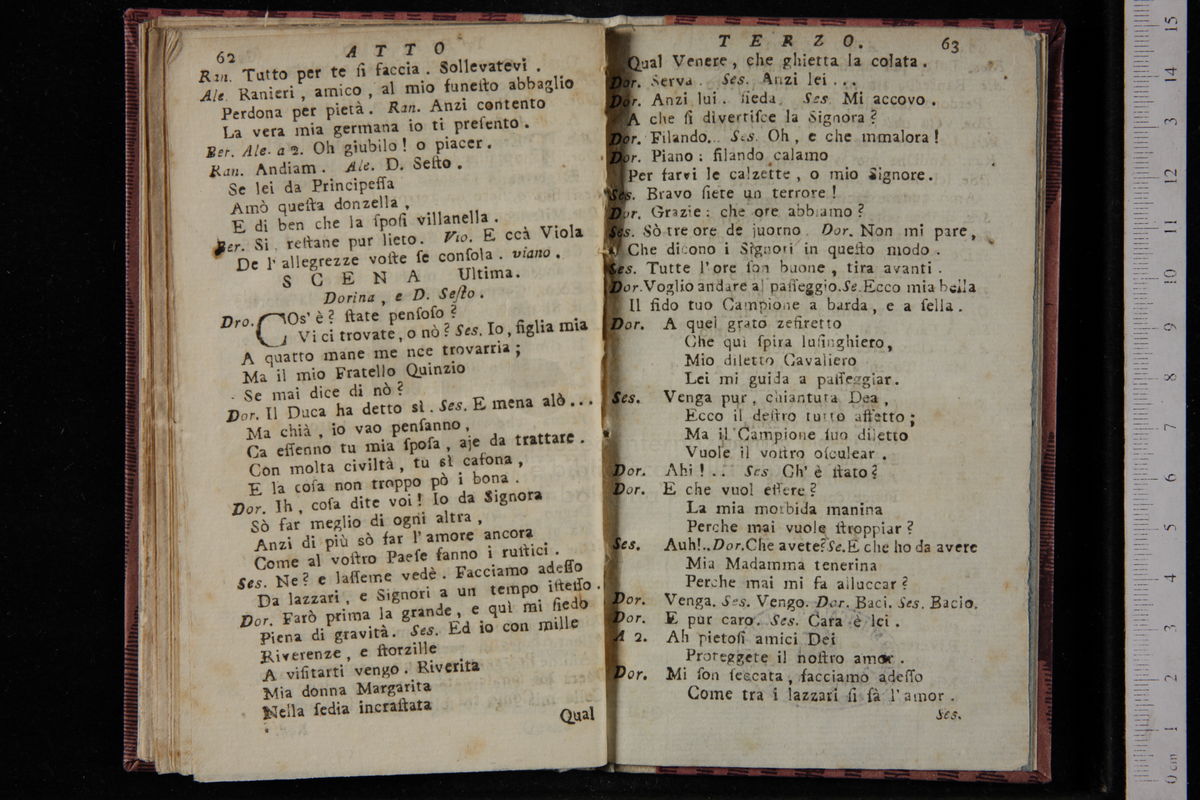 62
ATTO
Ran. Tutto per te ſi faccia . Sollevatevi .
Ale. Ranieri , amico , al mio funeſto abbaglio
Perdona per pietà . Ran. Anzi contento
La vera mia germana io ti preſento .
Ber. Ale. a 2. Oh giubilo ! o piacer .
Ran. Andiam . Ale. D. Seſto .
Se lei da Principeſſa
Amò queſta donzella ,
E di ben che la ſpoſi villanella .
Ber. Si reſtane pur lieto. Vio. E ccà Viola
De l'allegrezze voſte ſe conſola . viano .
SCENA Ultima.
Dorina , e D. Seſto .
Dro. COs' è ? ſtate penſoſo ?
Vi ci trovate, o nò ? Ses. Io, figlia mia
A quatto mane me nce trovarria ;
Ma il mio Fratello Quinzio
Se mai dice di nò ?
Dor. Il Duca ha detto sì . Ses. E mena alò...
Ma chià , io vao penſanno ,
Ca eſſenno tu mia ſpoſa , aje da trattare .
Con molta civiltà , tu sì cafona ,
E la coſa non troppo pò i bona .
Dor. Ih , coſa dite voi ! Io da Signora
Sò far meglio di ogni altra ,
Anzi di più sò far l'amore ancora
Come al voſtro Paeſe fanno i ruſtici .
Ses. Ne ? e laſſeme vedè . Facciamo adeſſo
Da lazzari , e Signori a un tempo iſteſſo .
Dor. Farò prima la grande , e quì mi ſiedo
Piena di gravità . Ses. Ed io con mille
Riverenze , e ſtorzille
A viſitarti vengo . Riverita
Mia donna Margarita
Nella ſedia incraſtata
Qual
TERZO.
63
Qual Venere , che ghietta la colata .
Dor. Serva . Ses. Anzi lei ...
Dor. Anzi lui . ſieda. Ses Mi accovo .
A che ſi divertiſce la Signora ?
Dor. Filando... Ses. Oh , e che mmalora !
Dor. Piano : filando calamo
Per farvi le calzette , o mio Signore .
Ses. Bravo ſiete un terrore !
Dor. Grazie : che ore abbiamo ?
Ses. Sò tre ore de juorno . Dor. Non mi pare,
Che dicono i Signori in queſto modo .
Ses. Tutte l'ore ſon buone , tira avanti .
Dor. Voglio andare al paſſeggio. Se. Ecco mia bella
Il fido tuo Campione a barda, e a ſella .
Dor. A quel grato zefiretto
Che quì ſpira luſinghiero,
Mio diletto Cavaliero
Lei mi guida a paſſeggiar.
Ses. Venga pur , chiantuta Dea ,
Ecco il deſtro tutto affetto ;
Ma il Campione ſuo diletto
Vuole il voſtro oſculear .
Dor. Ahi ! . . Ses Ch' è ſtato ?
Dor. E che vuol eſſere ?
La mia morbida manina
Perche mai vuole ſtroppiar ?
Ses. Auh!.. Dor. Che avete? Se. E che ho da avere
Mia Madamma tenerina
Perche mai mi fa alluccar ?
Dor. Venga. Ses. Vengo. Dor. Baci. Ses. Bacio.
Dor. E pur caro. Ses. Cara è lei .
A 2. Ah pietoſi amici Dei
Proteggete il noſtro amor .
Dor. Mi ſon ſeccata , facciamo adeſſo
Come tra i lazzari ſi fà l'amor .
Ses.
15
14
13
12
11
10
9
8
7
6
5
4
3
2
1
0 cm